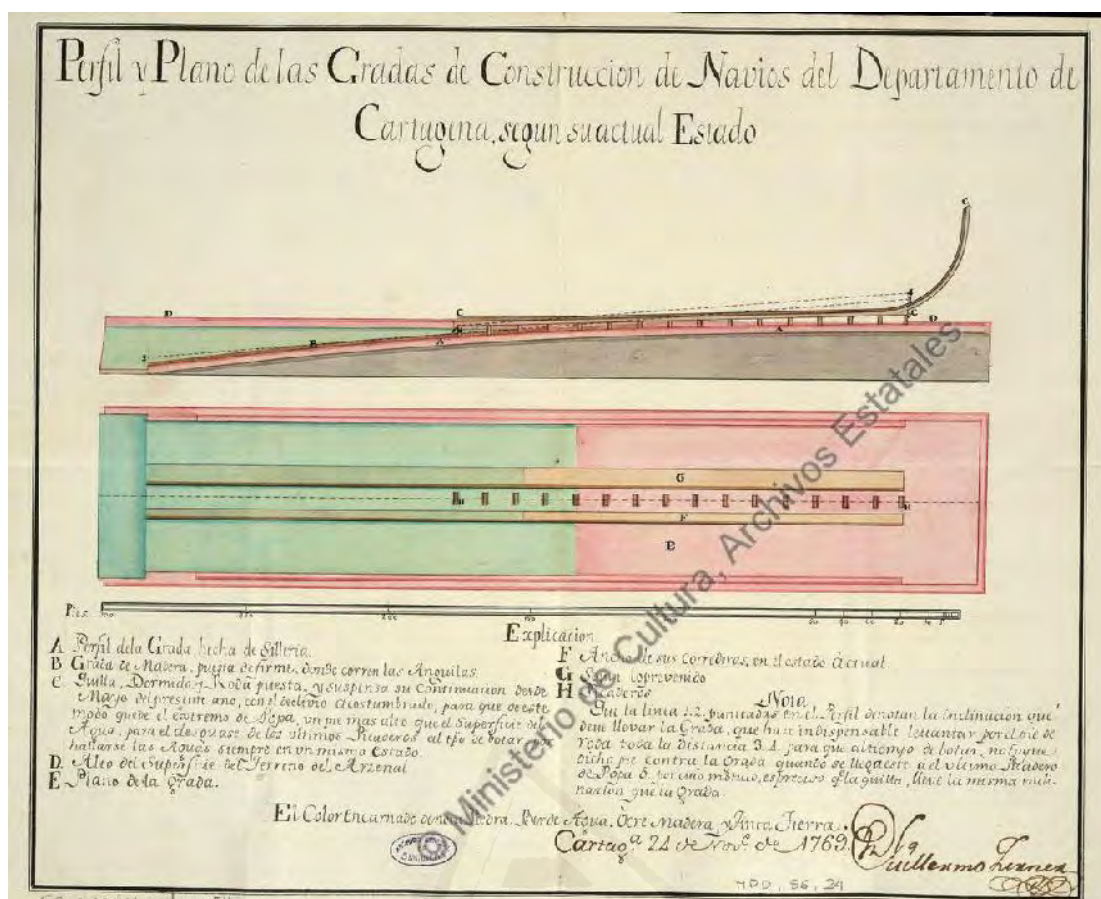 Perfil y Plano de las Gradas de Construccion de Navios del Departamento de
Cartagena, segun su actual Estado
Explicacion
A Perfil de la Grada hecha de Silleria.
B Grada de Madera, puesta de firme, donde corren las Anguilas
C Quilla, Dormido y Roda puesta, y suspensa su Continuacion desde
Mayo del presente ano, con el declivio Acostumbrado, para que de este
modo quede el extremo de Popa, un pie mas alto que el Superficie del
Agua, para el desguase de los ultimos Picaderos al tpo de botar por
hallarse las Aguas siempre en un mismo Estado.
D Alto del Superficie del Terreno del Arzenal
E Plano de la Grada.
F Ancho de sus Correderas, en el estado Actual
G Segun lo prevenido
H Picaderos
Nota
Que la linea 1.2. puntadas en el Perfil denotan la inclinacion que
deve llevar la Grada, que hace indispensable levantar por el pie de
roda toda la distancia 3.4. para que al tiempo de botar, no
dicho pie contra la Grada quando se llegase a el ultimo Picadero
de Popa 5. por cuio motivo, es preciso q la quilla, lleve la misma incli-
nacion que la Grada.
El Color Encarnado denota Piedra. Verde Agua. Ocre Madera, y Tinta Tierra.
Cartagª 24 de Novᵉ de 1769.
Guillermo Turner
MPD, 56, 24
© Ministerio de Cultura, Archivos Estatales